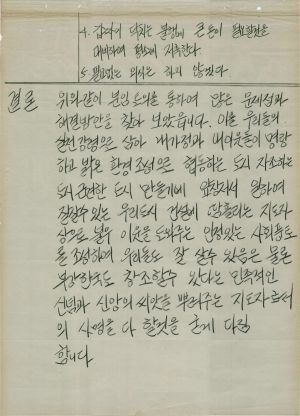 4. 갑자기 닥치는 불행에 큰돈이 필요할것을
대비하여 평소에 저축한다
5. 필요없는 외식은 하지 않겠다.
결론 위와같이 분임토의를 통하여 많은 문제점과
해결방안을 찾아 보았읍니다. 이를 우리들의
실천강령으로 삼아 내가정과 내이웃들이 명랑
하고 밝은 환경조성으로 협동하는 도시 자조하는
도시 근면한 도시 만들기에 앞장서서 원하여
잘살수있는 우리도시 건설에 땀흘리는 지도자
상으로 불우 이웃을 도와주는 인정있는 사회풍토
를 조성하여 우리들도 잘 살수 있음은 물론
부강한국도 창조할수 있다는 민족적인
신념과 신앙의 씨앗을 뿌려주는 지도자로서
의 사명을 다 할것을 굳게 다짐
합니다.